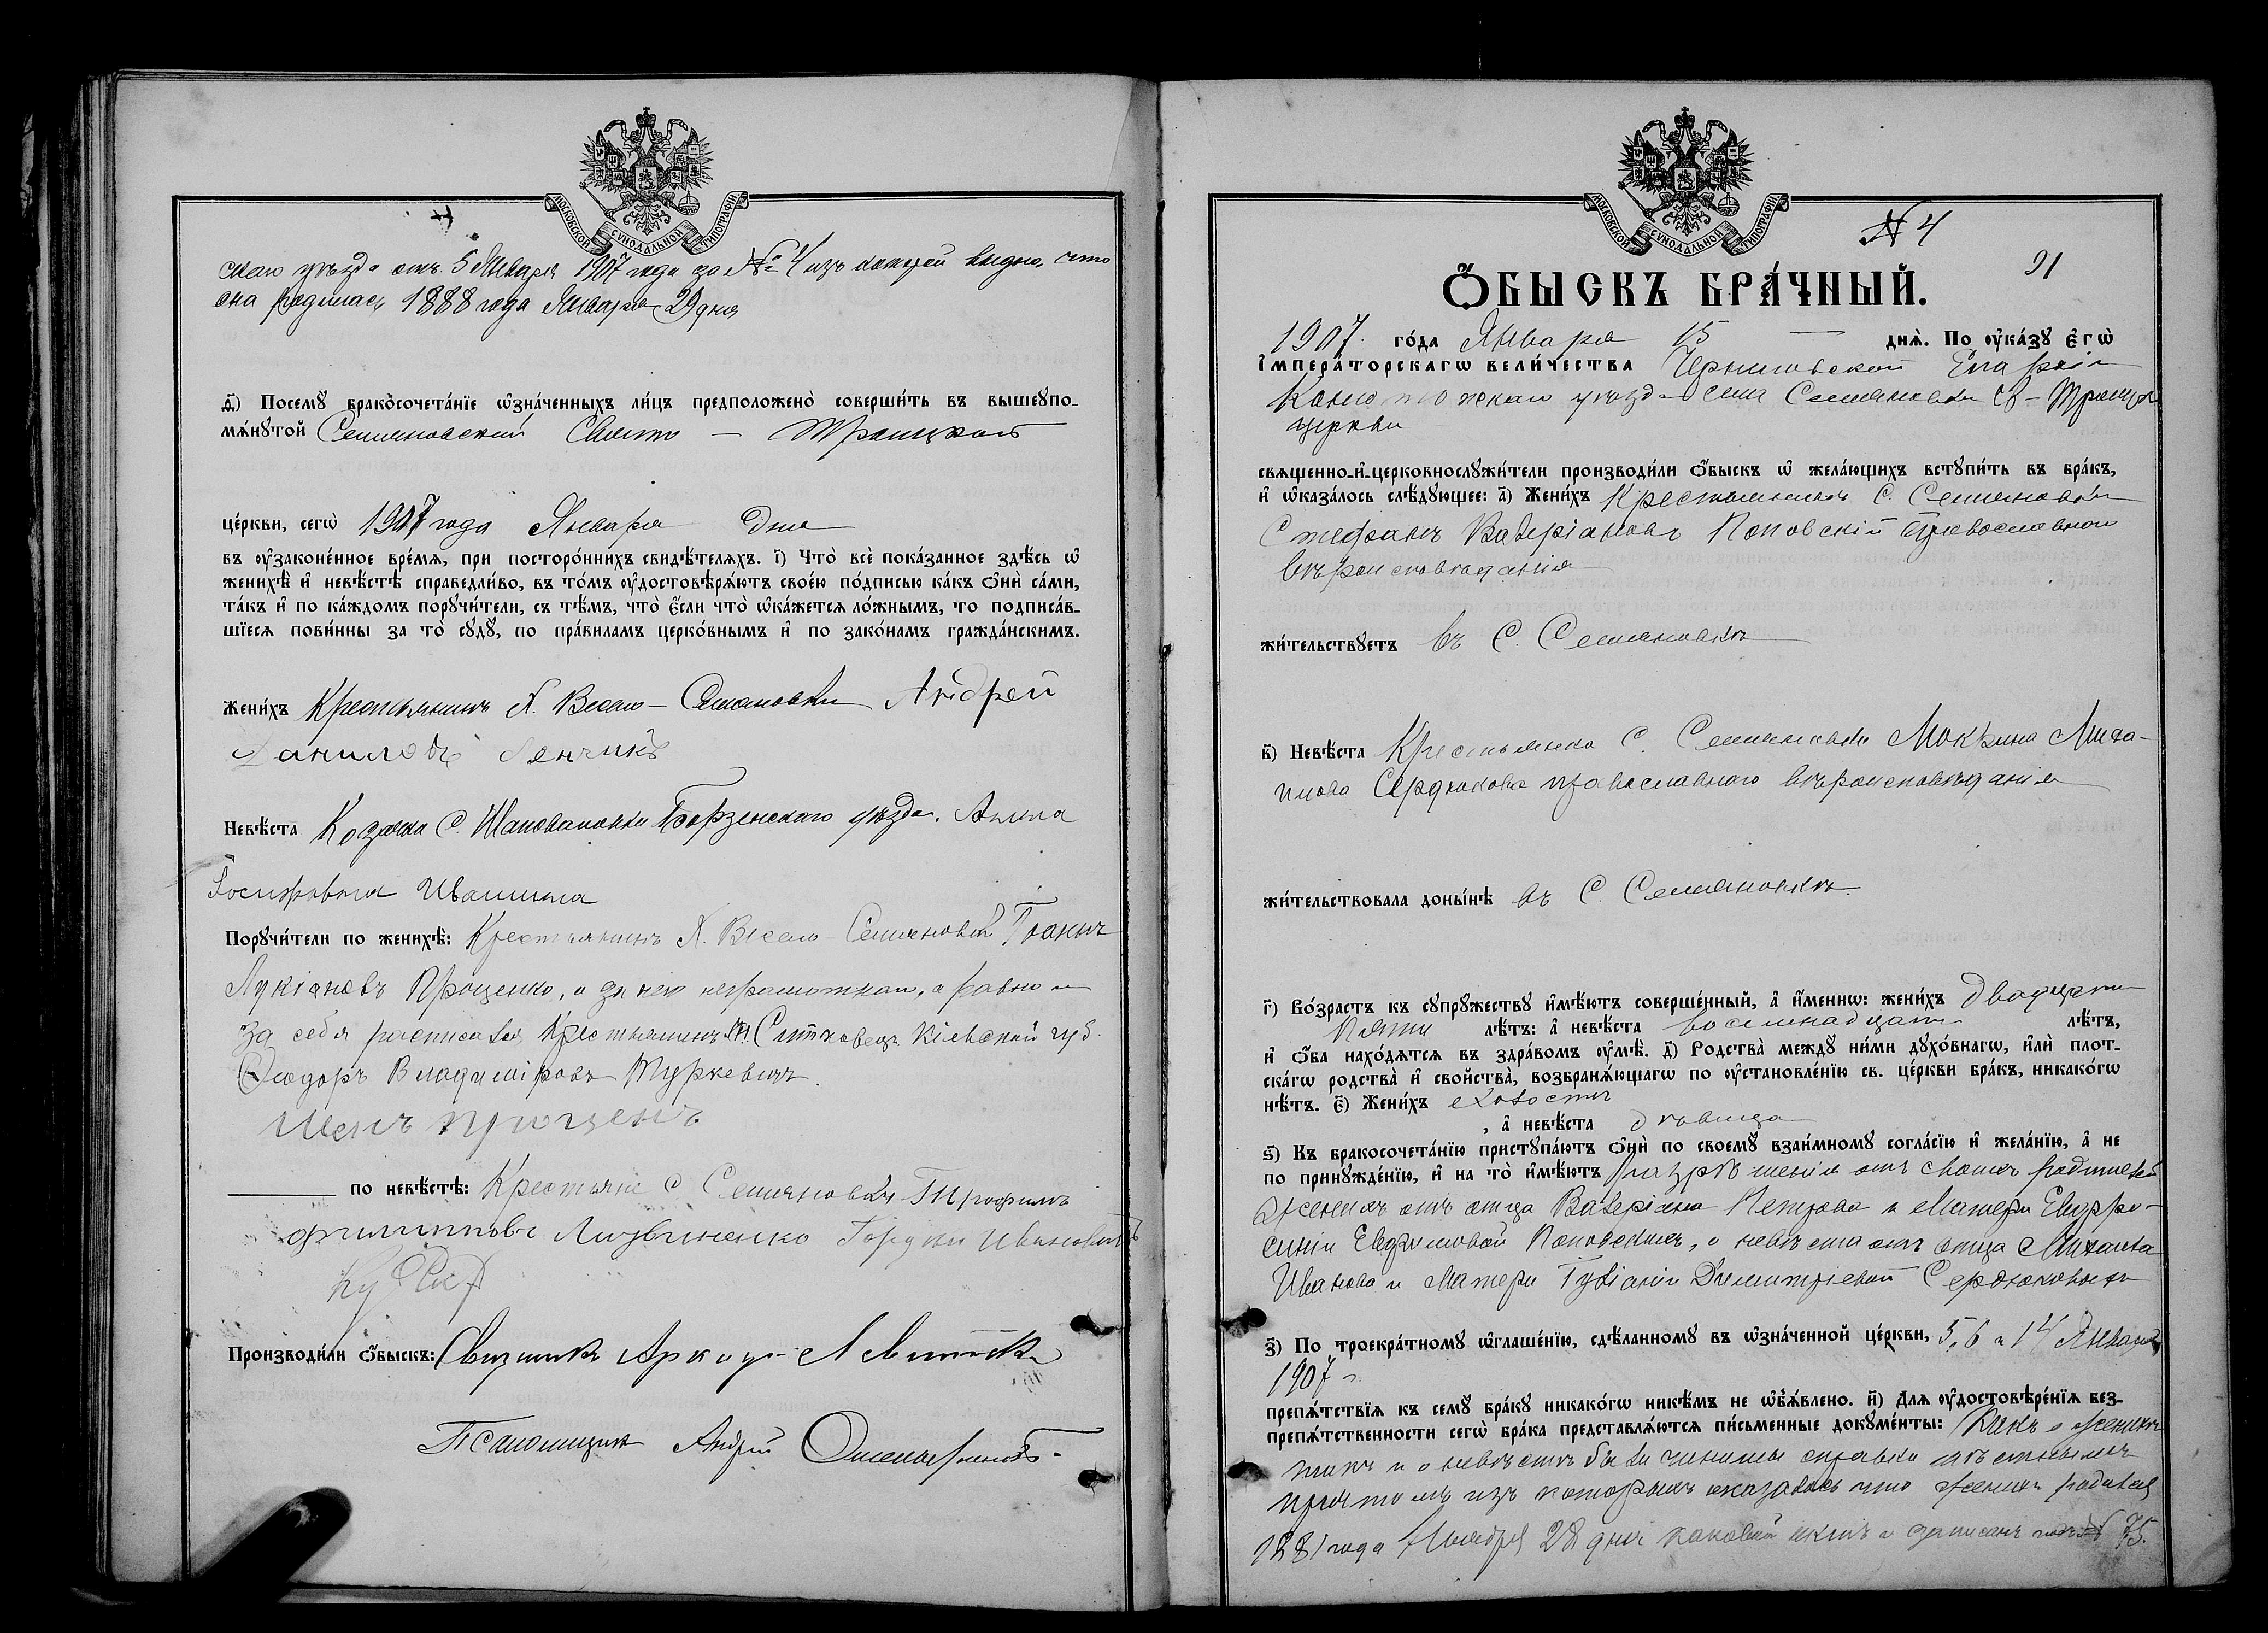 МОСКОВСКОЙ СѴНОДАЛЬНОЙ ТИПОГРАФІИ
скаго уѣзда отъ 5 Января 1907 года за № 4 изъ которой видно, что
она родилась 1888 года Января 29 дня
д҃) Посемꙋ бракосочета́нїе ѡ҆зна́ченныхъ ли́цъ предположено̀ соверши́ть въ вышеꙋпо-
мѧ́нꙋтой Семяновской Свято - Троицкой
це́ркви, сегѡ̀ 1907 года Января дня
въ ᲂу҆законе́нное вре́мѧ, при посторо́ннихъ свидѣ́телѧхъ. і҃) Что̀ всѐ пока́занное здѣ́сь ѡ҆
женихѣ̀ и҆ невѣ́стѣ справедли́во, въ то́мъ ᲂу҆достовѣрѧ́ютъ свое́ю по́дписью ка́къ ѻ҆нѝ са́ми,
та́къ и҆ по ка́ждомъ порꙋчи́тели, съ тѣ́мъ, что̀ є҆́сли что̀ ѡ҆ка́жетсѧ ло́жнымъ, то подписа́в-
шїесѧ пови́нны за то̀ сꙋдꙋ̀, по пра́виламъ церко́внымъ и҆ по зако́намъ гражда́нскимъ.
Жени́хъ Крестьянинъ Х. Весело - Семановки Андрей
Даниловъ
Невѣ́ста Козачка С. Шаповаловки Борзенскаго уѣзда. Анна
Іосифовна Ивашина
Порꙋчи́тели по женихѣ̀: Крестьянинъ Х. Весело - Семяновки Іоаннъ
Лукіановъ Проценко, а за него неграмотнаго, а равно и
за себя росписался Крестьянинъ Ситковецъ Кіевской губ.
Ѳеодоръ Владиміровъ Туркевичъ.
по невѣ́стѣ: Крестьяне С Семяновки Трофимъ
Филиповъ Литвиненко Гордѣй Ивановичъ
Производи́ли ѻ҆́быскъ: Священникъ Аркадій Левитскій
Псаломщикъ Андрей
МОСКОВСКОЙ СѴНОДАЛЬНОЙ ТИПОГРАФІИ
№ 4
91
Ѻ҆БЫСКЪ БРА́ЧНЫЙ.
1907. го́да Января 15 днѧ̀. По ᲂу҆ка́зꙋ є҆гѡ̀
і҆мпера́торскагѡ вели́чества Черниговской Епархіи
Конотопскаго уѣзда села Семяновки Св - Троицк
церкви
свѧщенно-и҆-церковнослꙋжи́тели производи́ли ѻ҆́быскъ ѡ҆ жела́ющихъ встꙋпи́ть въ бра́къ,
и҆ ѡ҆каза́лось слѣ́дꙋющее: а҃) Жени́хъ Крестьянинъ С. Семяновки
Стефанъ Валеріановъ Поповскій православнаго
вѣроисповѣданія
жи́тельствꙋетъ въ С. Семяновкѣ
в҃) Невѣ́ста Крестьянка С. Семяновки Мокрина Миха-
илова Сердюкова православнаго вѣроисповѣданія
жи́тельствовала доны́нѣ въ С. Семяновкѣ.
г҃) Во́зрастъ къ сꙋпрꙋ́жествꙋ и҆мѣ́ютъ соверше́нный, а҆ и҆́меннѡ: жени́хъ двадцати
пяти лѣ́тъ: а҆ невѣ́ста восемнадцати лѣ́тъ,
и҆ ѻ҆́ба нахо́дѧтсѧ въ здра́вомъ ᲂу҆мѣ̀. д҃) Родства̀ междꙋ ни́ми дꙋхо́внагѡ, и҆лѝ плот-
ска́гѡ родства̀ и҆ сво́йства̀, возбранѧ́ющагѡ по ᲂу҆становле́нїю св. це́ркви бра́къ, никако́гѡ
нѣ́тъ. є҃) Жени́хъ холостъ
, а҆ невѣ́ста дѣвица
ѕ҃) Къ бракосочета́нїю пристꙋпа́ютъ ѻ҆нѝ по своемꙋ̀ взаи́мномꙋ согла́сїю и҆ жела́нїю, а҆ не
по принꙋжде́нїю, и҆ на то̀ и҆мѣ́ютъ разрѣшенія отъ своихъ родителей
женихъ отъ отца Валеріана Петрова и Матери Евфро-
синіи Евфимовой Поповскихъ, а невѣста отъ отца Михаила
Иванова и Матери Гуліаніи Димитріевой Сердюковыхъ
з҃) По троекра́тномꙋ ѡ҆глаше́нїю, сдѣ́ланномꙋ въ ѡ҆зна́ченной це́ркви, 5, 6 и 14 Января
1907 г.
препѧ́тствїѧ къ семꙋ̀ бра́кꙋ никако́гѡ никѣ́мъ не ѡ҆б̾ѧ́влено. и҃) Длѧ ᲂу҆достовѣре́нїѧ без-
препѧ́тственности сегѡ̀ бра́ка представлѧ́ютсѧ пи́сьменные докꙋме́нты: Какъ о женихѣ
такъ и о невѣстѣ были чинимы справки мѣстнымъ
причтомъ изъ которыхъ оказалось что женихъ родился
1881 года Ноября 28 дня каковой актъ и записанъ подъ № 75.